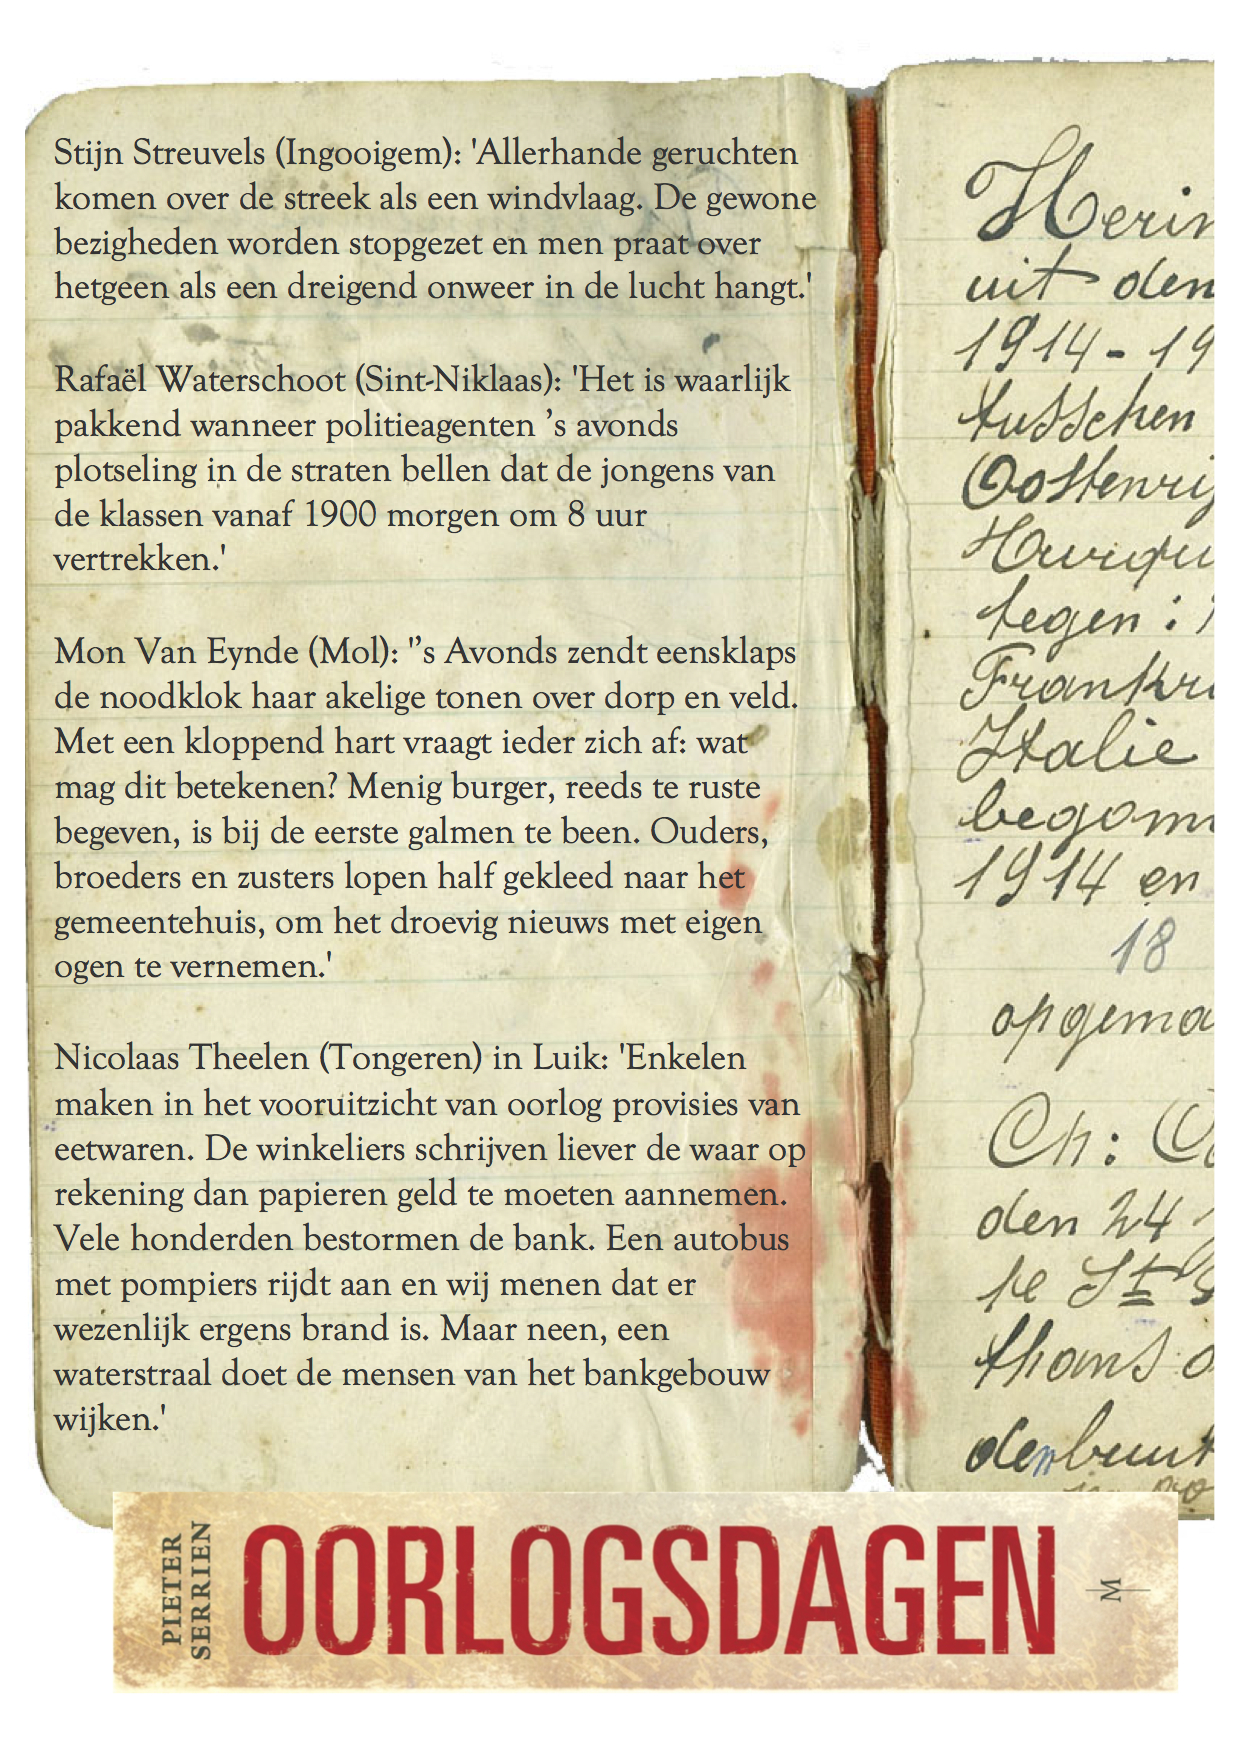 Stijn Streuvels (Ingooigem): 'Allerhande geruchten
komen over de streek als een windvlaag. De gewone
bezigheden worden stopgezet en men praat over
hetgeen als een dreigend onweer in de lucht hangt.'
Rafaël Waterschoot (Sint-Niklaas): 'Het is waarlijk
pakkend wanneer politieagenten 's avonds
plotseling in de straten bellen dat de jongens van
de klassen vanaf 1900 morgen om 8 uur
vertrekken.'
Mon Van Eynde (Mol): ''s Avonds zendt eensklaps
de noodklok haar akelige tonen over dorp en veld.
Met een kloppend hart vraagt ieder zich af: wat
mag dit betekenen? Menig burger, reeds te ruste
begeven, is bij de eerste galmen te been. Ouders,
broeders en zusters lopen half gekleed naar het
gemeentehuis, om het droevig nieuws met eigen
ogen te vernemen.'
Nicolaas Theelen (Tongeren) in Luik: 'Enkelen
maken in het vooruitzicht van oorlog provisies van
eetwaren. De winkeliers schrijven liever de waar op
rekening dan papieren geld te moeten aannemen.
Vele honderden bestormen de bank. Een autobus
met pompiers rijdt aan en wij menen dat er
wezenlijk ergens brand is. Maar neen, een
waterstraal doet de mensen van het bankgebouw
wijken.'
Herin
uit den
1914-19
tusschen
Oostenrij
tegen :
Frankr
Italie
begonn
1914 en
18
opgema
Ch:
den 24
te St
thans
PIETER
SERRIEN
OORLOGSDAGEN
M